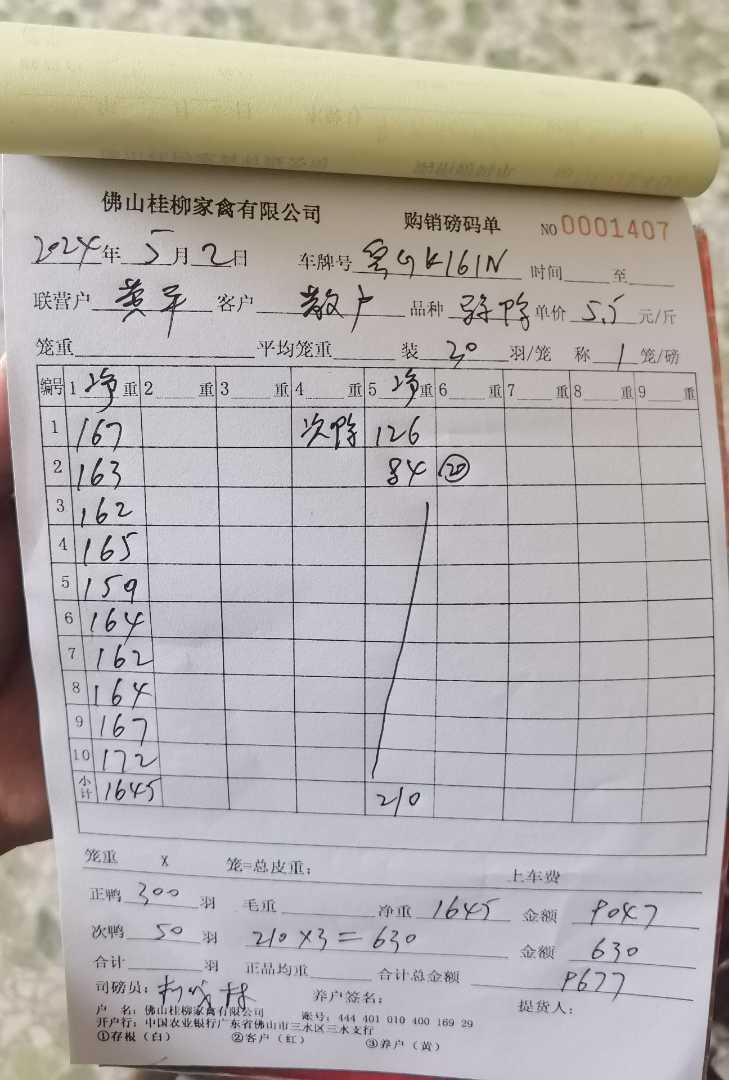 佛山桂柳家禽有限公司 购销磅码单 NO 0001407
2024年5月2日 车牌号 K161N 时间 至
联营户 黄平 客户 散户 品种 单价 5.5 元/斤
笼重 平均笼重 装 30 羽/笼 称 1 笼/磅
编号 1 净重 2 重 3 重 4 重 5 净重 6 重 7 重 8 重 9 重
1 167 次鸭 126
2 163 84 20
3 162
4 165
5 159
6 164
7 162
8 164
9 167
10 172
小计 1645 210
笼重 x 笼=总皮重: 上车费
正鸭 300 羽 毛重 净重 1645 金额 9047
次鸭 50 羽 210×3=630 金额 630
合计 羽 正品均重 合计总金额 9677
司磅员: 养户签名: 提货人:
户 名: 佛山桂柳家禽有限公司 账号: 444 401 010 400 169 29
开户行: 中国农业银行广东省佛山市三水区三水支行
①存根(白) ②客户(红) ③养户(黄)